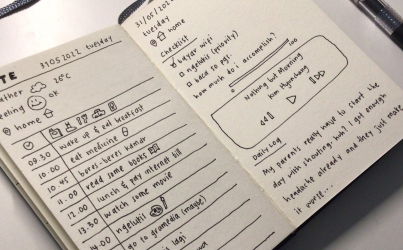 TE
31.05.2022 tuesday
ather 26°C
eeling OK
home
09.30 wake up & eat breakfast
10.00 eat medicine
10.45 beres-beres kamar
11.00 read some books
12.00 lunch & pay internet bill
13.30 watch some movie
14.00 ngelutil
go to gramedia (maybe)
lagi
31/05/2022
tuesday
home
checklist
bayar wifi
ngelutil (priority)
baca 50 pgs.
how much do i accomplish?
100
Nothing but Morning
Kim Hyunchang
Daily Log
My parents really have to start the
day with shouting, huh? i got enough
headache already and they just make
it worse...